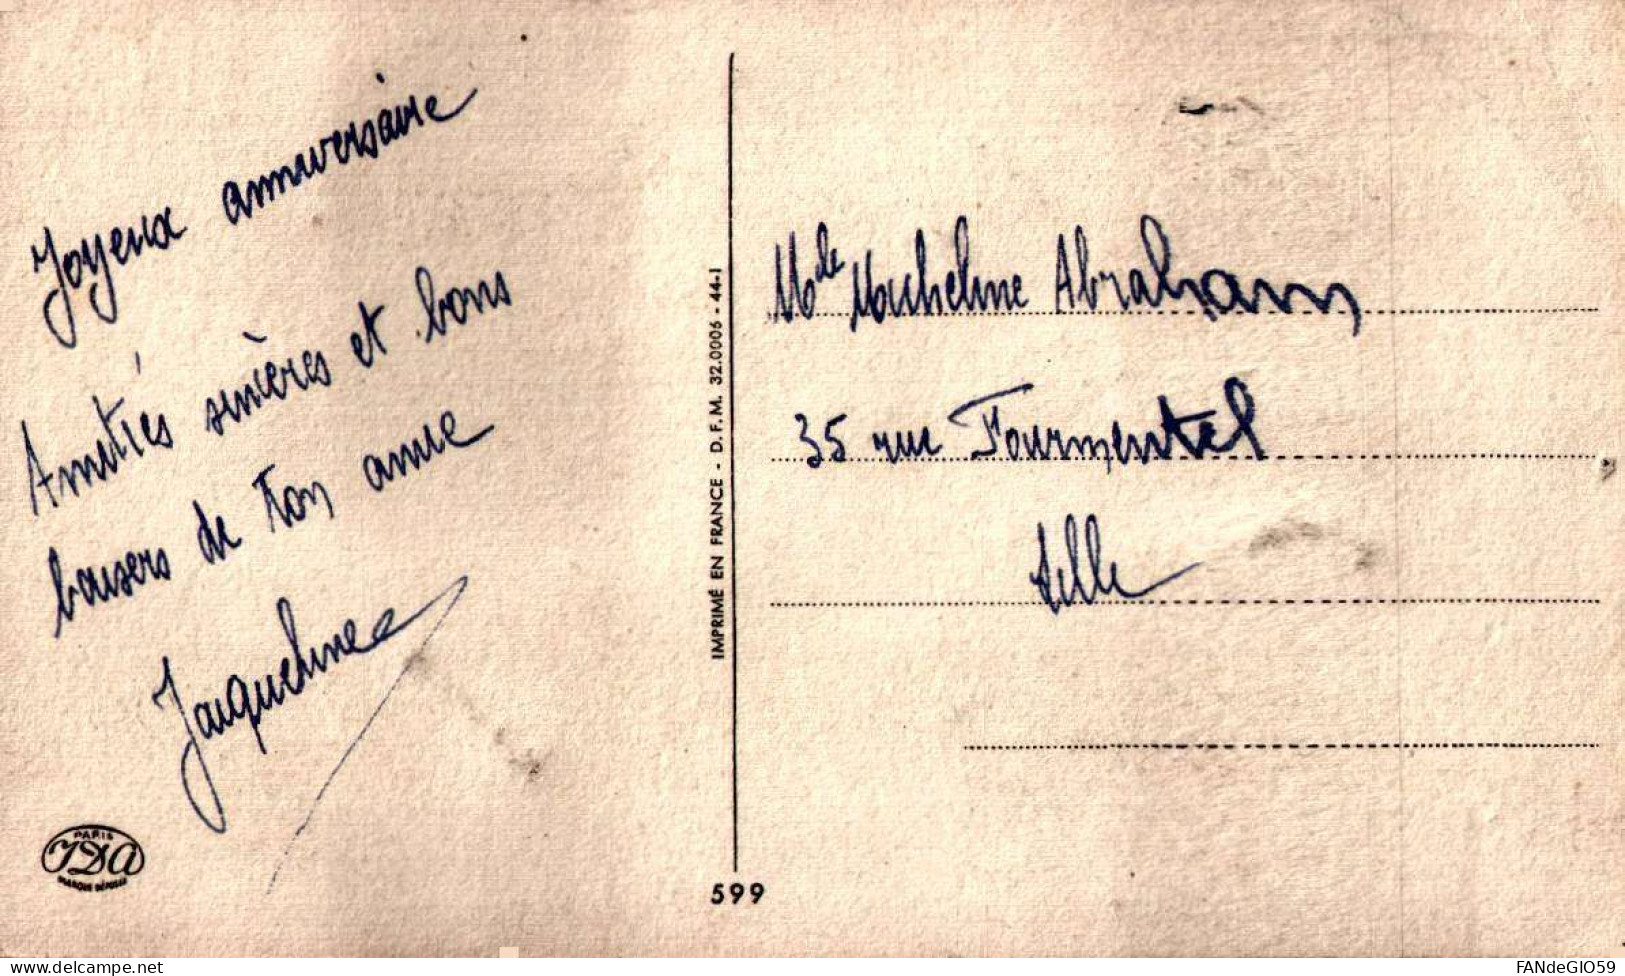 Joyeux anniversaire
Amitiés sincères et bons
baisers de ton amie
Jacqueline
PARIS
IDA
MARQUE DÉPOSÉE
IMPRIMÉ EN FRANCE - D.F.M. 32.0006 - 44-1
599
Mlle Micheline Abraham
35 rue Fourmentel
Lille
www.delcampe.net
FANdeGIO59